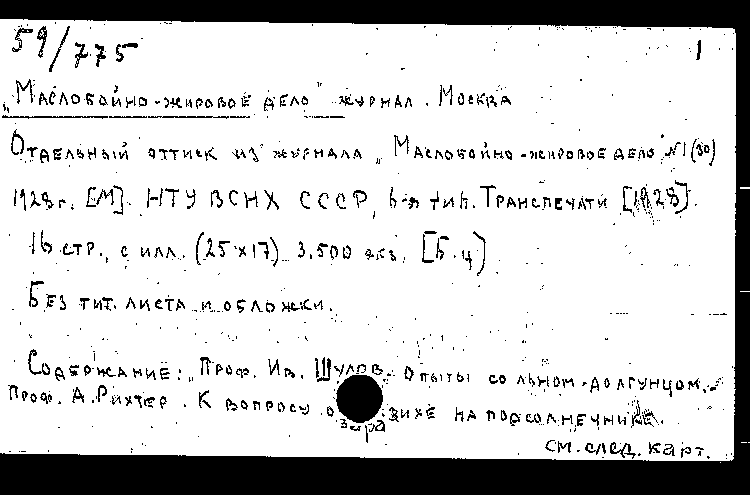 59/775 1
„Маслобойно-жировое дело" журнал. Москва
Отдельный оттиск из журнала „Маслобойно-жировое дело" №1(30)
1928 г. [М]. НТУ ВСНХ СССР, 6-я тип. Транспечати [1928].
16 стр., с илл. (25×17) 3.500 экз. [Б.ц]
Без тит. листа и обложки.
Содержание: „Проф. Ив. Шулов. Опыты со льном-долгунцом.-
Проф. А. Рихтер. К вопросу о заразихе на подсолнечнике.
см. след. карт.